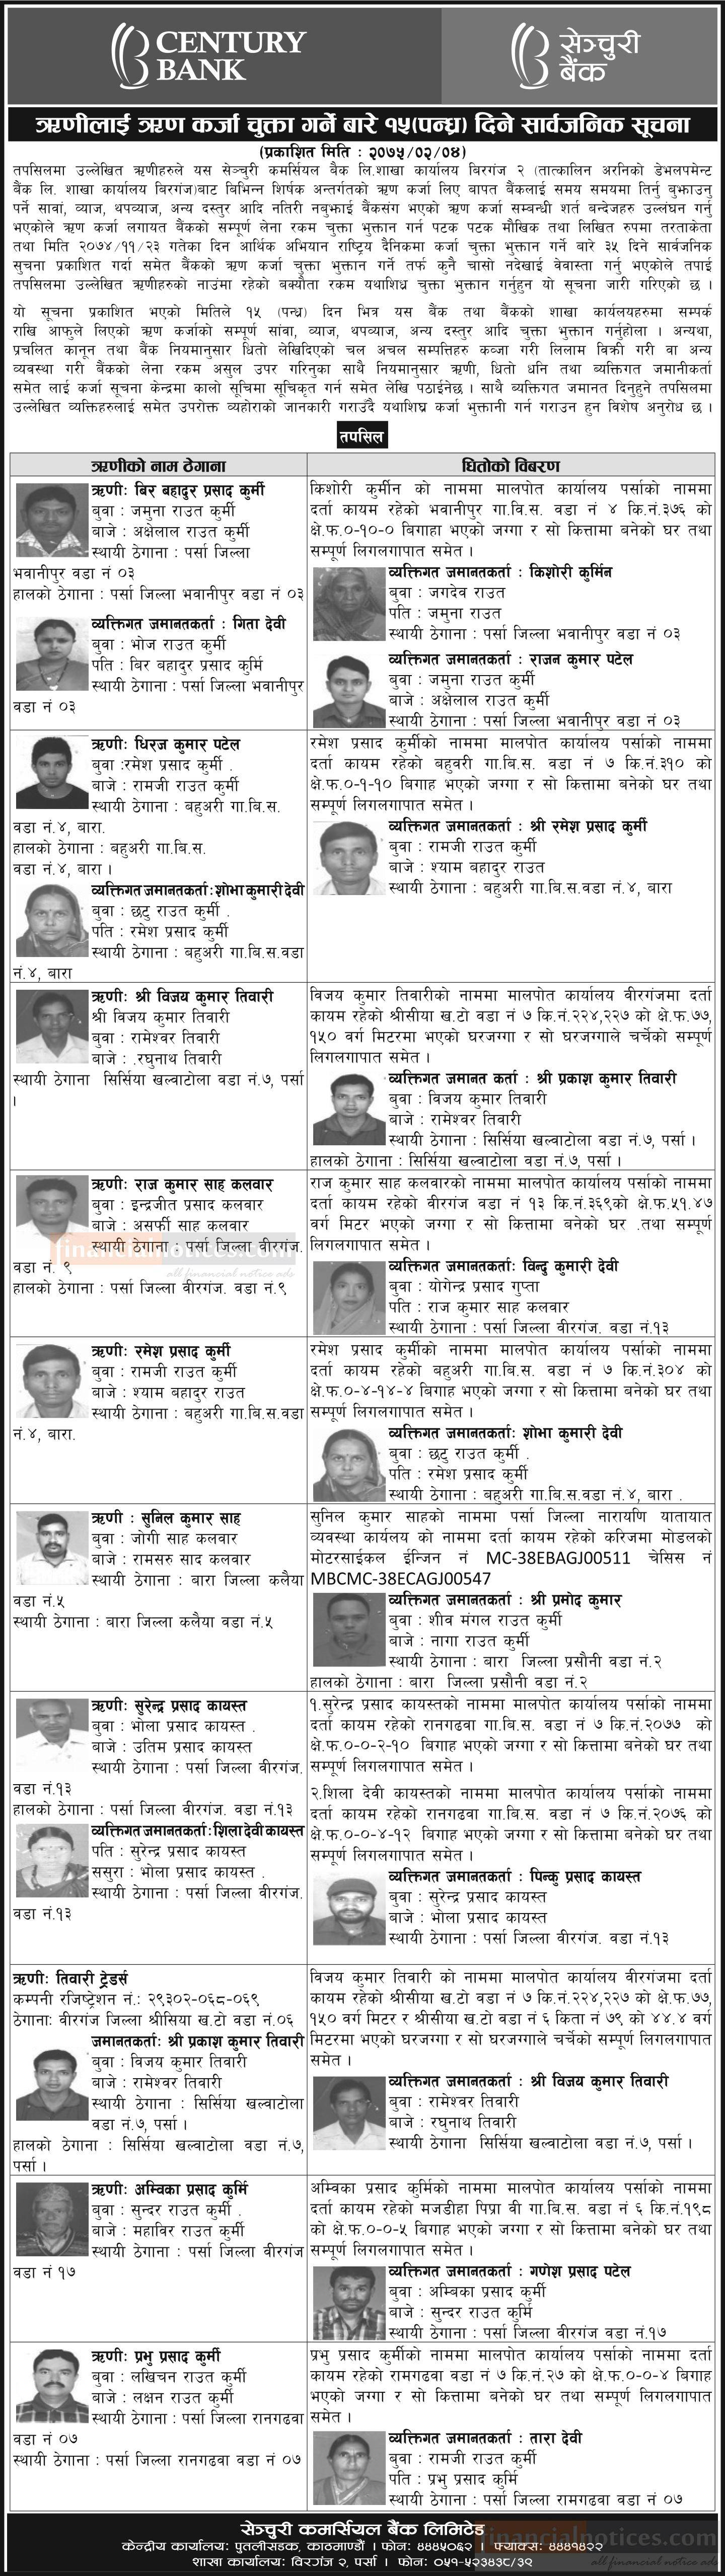 CENTURY
BANK
सेञ्चुरी
बैंक
ऋणीलाई ऋण कर्जा चुक्ता गर्ने बारे १५(पन्ध्र) दिने सार्वजनिक सूचना
(प्रकाशित मिति : २०७५/०२/०४)
तपसिलमा उल्लेखित ऋणीहरुले यस सेञ्चुरी कमर्सियल बैंक लि.शाखा कार्यालय बिरगंज २ (तात्कालिन अरनिको डेभलपमेन्ट
बैंक लि. शाखा कार्यालय बिरगंज)बाट बिभिन्न शिर्षक अन्तर्गतको ऋण कर्जा लिए बापत बैंकलाई समय समयमा तिर्नु बुझाउनु
पर्ने सावां, व्याज, थपव्याज, अन्य दस्तुर आदि नतिरी नबुझाई बैंकसंग भएको ऋण कर्जा सम्बन्धी शर्त बन्देजहरु उल्लंघन गर्नु
भएकोले ऋण कर्जा लगायत बैंकको सम्पूर्ण लेना रकम चुक्ता भुक्तान गर्न पटक पटक मौखिक तथा लिखित रुपमा तरताकेता
तथा मिति २०७४/११/२३ गतेका दिन आर्थिक अभियान राष्ट्रिय दैनिकमा कर्जा चुक्ता भुक्तान गर्ने बारे ३५ दिने सार्वजनिक
सुचना प्रकाशित गर्दा समेत बैंकको ऋण कर्जा चुक्ता भुक्तान गर्ने तर्फ कुनै चासो नदेखाई वेवास्ता गर्नु भएकोले तपाई
तपसिलमा उल्लेखित ऋणीहरुको नाउंमा रहेको बक्यौता रकम यथाशिघ्र चुक्ता भुक्तान गर्नुहुन यो सूचना जारी गरिएको छ ।
यो सूचना प्रकाशित भएको मितिले १५ (पन्ध्र) दिन भित्र यस बैंक तथा बैंकको शाखा कार्यलयहरुमा सम्पर्क
राखि आफुले लिएको ऋण कर्जाको सम्पूर्ण सांवा, व्याज, थपव्याज, अन्य दस्तुर आदि चुक्ता भुक्तान गर्नुहोला । अन्यथा,
प्रचलित कानून तथा बैंक नियमानुसार धितो लेखिदिएको चल अचल सम्पत्तिहरु कव्जा गरी लिलाम विक्री गरी वा अन्य
व्यवस्था गरी बैंकको लेना रकम असुल उपर गरिनुका साथै नियमानुसार ऋणी, धितो धनि तथा व्यक्तिगत जमानीकर्ता
समेत लाई कर्जा सूचना केन्द्रमा कालो सूचिमा सूचिकृत गर्न समेत लेखि पठाईनेछ । साथै व्यक्तिगत जमानत दिनुहुने तपसिलमा
उल्लेखित व्यक्तिहरुलाई समेत उपरोक्त व्यहोराको जानकारी गराउँदै यथाशिघ्र कर्जा भुक्तानी गर्न गराउन हुन विशेष अनुरोध छ ।
तपसिल
ऋणीको नाम ठेगाना
धितोको विबरण
ऋणी: बिर बहादुर प्रसाद कुर्मी
बुवा : जमुना राउत कुर्मी
बाजे : अक्षेलाल राउत कुर्मी
स्थायी ठेगाना : पर्सा जिल्ला
भवानीपुर वडा नं ०३
हालको ठेगाना : पर्सा जिल्ला भवानीपुर वडा नं ०३
व्यक्तिगत जमानतकर्ता : गिता देवी
बुवा : भोज राउत कुर्मी
पति : बिर बहादुर प्रसाद कुर्मि
स्थायी ठेगाना : पर्सा जिल्ला भवानीपुर
वडा नं ०३
किशोरी कुर्मीन को नाममा मालपोत कार्यालय पर्साको नाममा
दर्ता कायम रहेको भवानीपुर गा.बि.स. वडा नं ४ कि.नं.३७६ को
क्षे.फ.०-१०-० बिगाहा भएको जग्गा र सो कित्तामा बनेको घर तथा
सम्पूर्ण लिगलगापात समेत ।
व्यक्तिगत जमानतकर्ता : किशोरी कुर्मिन
बुवा : जगदेव राउत
पति : जमुना राउत
स्थायी ठेगाना : पर्सा जिल्ला भवानीपुर वडा नं ०३
व्यक्तिगत जमानतकर्ता : राजन कुमार पटेल
बुवा : जमुना राउत कुर्मी
बाजे : अक्षेलाल राउत कुर्मी
स्थायी ठेगाना : पर्सा जिल्ला भवानीपुर वडा नं ०३
ऋणी: धिरज कुमार पटेल
बुवा :रमेश प्रसाद कुर्मी .
बाजे : रामजी राउत कुर्मी
स्थायी ठेगाना : बहुअरी गा.बि.स.
वडा नं.४, बारा.
हालको ठेगाना : बहुअरी गा.बि.स.
वडा नं.४, बारा ।
व्यक्तिगत जमानतकर्ता: शोभा कुमारी देवी
बुवा : छटु राउत कुर्मी .
पति : रमेश प्रसाद कुर्मी
स्थायी ठेगाना : बहुअरी गा.बि.स.वडा
नं.४, बारा
रमेश प्रसाद कुर्मीको नाममा मालपोत कार्यालय पर्साको नाममा
दर्ता कायम रहेको बहुवरी गा.बि.स. वडा नं ७ कि.नं.३१० को
क्षे.फ.०-१-१० बिगाह भएको जग्गा र सो कित्तामा बनेको घर तथा
सम्पूर्ण लिगलगापात समेत ।
व्यक्तिगत जमानतकर्ता : श्री रमेश प्रसाद कुर्मी
बुवा : रामजी राउत कुर्मी
बाजे : श्याम बहादुर राउत
स्थायी ठेगाना : बहुअरी गा.बि.स.वडा नं.४, बारा
ऋणी: श्री विजय कुमार तिवारी
श्री विजय कुमार तिवारी
बुवा : रामेश्वर तिवारी
बाजे : .रघुनाथ तिवारी
स्थायी ठेगाना सिर्सिया खल्वाटोला वडा नं.७, पर्सा
।
विजय कुमार तिवारीको नाममा मालपोत कार्यालय वीरगंजमा दर्ता
कायम रहेको श्रीसीया ख.टो वडा नं ७ कि.नं.२२४,२२७ को क्षे.फ.७७,
१५० वर्ग मिटरमा भएको घरजग्गा र सो घरजग्गाले चर्चेको सम्पूर्ण
लिगलगापात समेत ।
व्यक्तिगत जमानत कर्ता : श्री प्रकाश कुमार तिवारी
बुवा : विजय कुमार तिवारी
बाजे : रामेश्वर तिवारी
स्थायी ठेगाना : सिर्सिया खल्वाटोला वडा नं.७, पर्सा ।
हालको ठेगाना : सिर्सिया खल्वाटोला वडा नं.७, पर्सा ।
ऋणी: राज कुमार साह कलवार
बुवा : इन्द्रजीत प्रसाद कलवार
बाजे : असर्फी साह कलवार
स्थायी ठेगाना : पर्सा जिल्ला वीरगंज.
वडा नं. ९
हालको ठेगाना : पर्सा जिल्ला वीरगंज. वडा नं.९
financialnotices.com
all financial notice ads
राज कुमार साह कलवारको नाममा मालपोत कार्यालय पर्साको नाममा
दर्ता कायम रहेको वीरगंज वडा नं १३ कि.नं.३६९को क्षे.फ.५१.४७
वर्ग मिटर भएको जग्गा र सो कित्तामा बनेको घर .तथा सम्पूर्ण
लिगलगापात समेत ।
व्यक्तिगत जमानतकर्ता: विन्दु कुमारी देवी
बुवा : योगेन्द्र प्रसाद गुप्ता
पति : राज कुमार साह कलवार
स्थायी ठेगाना : पर्सा जिल्ला वीरगंज. वडा नं.१३
ऋणी: रमेश प्रसाद कुर्मी
बुवा : रामजी राउत कुर्मी
बाजे : श्याम बहादुर राउत
स्थायी ठेगाना : बहुअरी गा.बि.स.वडा
नं.४, बारा.
रमेश प्रसाद कुर्मीको नाममा मालपोत कार्यालय पर्साको नाममा
दर्ता कायम रहेको बहुअरी गा.बि.स. वडा नं ७ कि.नं.३०४ को
क्षे.फ.०-४-१५-४ बिगाह भएको जग्गा र सो कित्तामा बनेको घर तथा
सम्पूर्ण लिगलगापात समेत ।
व्यक्तिगत जमानतकर्ता: शोभा कुमारी देवी
बुवा : छटु राउत कुर्मी .
पति : रमेश प्रसाद कुर्मी
स्थायी ठेगाना : बहुअरी गा.बि.स.वडा नं.४, बारा .
ऋणी : सुनिल कुमार साह
बुवा : जोगी साह कलवार
बाजे : रामसरु साद कलवार
स्थायी ठेगाना : बारा जिल्ला कलैया
वडा नं.५
स्थायी ठेगाना : बारा जिल्ला कलैया वडा नं.५
सुनिल कुमार साहको नाममा पर्सा जिल्ला नारायणि यातायात
व्यवस्था कार्यलय को नाममा दर्ता कायम रहेको करिजमा मोडलको
मोटरसाईकल ईन्जिन नं MC-38EBAGJ00511 चेसिस नं
MBCMC-38ECAGJ00547
व्यक्तिगत जमानतकर्ता : श्री प्रमोद कुमार
बुवा : शीव मंगल राउत कुर्मी
बाजे : नागा राउत कुर्मी
स्थायी ठेगाना : बारा जिल्ला प्रसौनी वडा नं.२
हालको ठेगाना : बारा जिल्ला प्रसौनी वडा नं.२
ऋणी: सुरेन्द्र प्रसाद कायस्त
बुवा : भोला प्रसाद कायस्त .
बाजे : उतिम प्रसाद कायस्त
स्थायी ठेगाना : पर्सा जिल्ला वीरगंज.
वडा नं.१३
हालको ठेगाना : पर्सा जिल्ला वीरगंज. वडा नं.१३
व्यक्तिगत जमानतकर्ता: शिला देवी कायस्त
पति : सुरेन्द्र प्रसाद कायस्त
ससुरा : भोला प्रसाद कायस्त .
स्थायी ठेगाना : पर्सा जिल्ला वीरगंज.
वडा नं.१३
१.सुरेन्द्र प्रसाद कायस्तको नाममा मालपोत कार्यालय पर्साको नाममा
दर्ता कायम रहेको रानगढवा गा.बि.स. वडा नं ७ कि.नं.२०७७ को
क्षे.फ.०-०-२-१० बिगाह भएको जग्गा र सो कित्तामा बनेको घर तथा
सम्पूर्ण लिगलगापात समेत ।
२.शिला देवी कायस्तको नाममा मालपोत कार्यालय पर्साको नाममा
दर्ता कायम रहेको रानगढवा गा.बि.स. वडा नं ७ कि.नं.२०७६ को
क्षे.फ.०-०-४-१२ बिगाह भएको जग्गा र सो कित्तामा बनेको घर तथा
सम्पूर्ण लिगलगापात समेत ।
व्यक्तिगत जमानतकर्ता : पिन्कु प्रसाद कायस्त
बुवा : सुरेन्द्र प्रसाद कायस्त
बाजे : भोला प्रसाद कायस्त
स्थायी ठेगाना : पर्सा जिल्ला वीरगंज. वडा नं.१३
ऋणी: तिवारी ट्रेडर्स
कम्पनी रजिष्ट्रेशन नं.: २९३०२-०६८-०६९
ठेगाना: वीरगंज जिल्ला श्रीसिया ख.टो वडा नं.०६
जमानतकर्ता: श्री प्रकाश कुमार तिवारी
बुवा : विजय कुमार तिवारी
बाजे : रामेश्वर तिवारी
स्थायी ठेगाना : सिर्सिया खल्वाटोला
वडा नं.७, पर्सा ।
हालको ठेगाना : सिर्सिया खल्वाटोला वडा नं.७,
पर्सा ।
विजय कुमार तिवारी को नाममा मालपोत कार्यालय वीरगंजमा दर्ता
कायम रहेको श्रीसीया ख.टो वडा नं ७ कि.नं.२२४,२२७ को क्षे.फ.७७,
१५० वर्ग मिटर र श्रीसीया ख.टो वडा नं ६ किता नं ७९ को ४४.४ वर्ग
मिटरमा भएको घरजग्गा र सो घरजग्गाले चर्चेको सम्पूर्ण लिगलगापात
समेत ।
व्यक्तिगत जमानतकर्ता : श्री विजय कुमार तिवारी
बुवा : रामेश्वर तिवारी
बाजे : रघुनाथ तिवारी
स्थायी ठेगाना सिर्सिया खल्वाटोला वडा नं.७, पर्सा ।
ऋणी: अम्विका प्रसाद कुर्मि
बुवा : सुन्दर राउत कुर्मी .
बाजे : महाविर राउत कुर्मी
स्थायी ठेगाना : पर्सा जिल्ला वीरगंज
वडा नं १७
अम्विका प्रसाद कुर्मिको नाममा मालपोत कार्यालय पर्साको नाममा
दर्ता कायम रहेको मजडीहा पिप्रा वी गा.बि.स. वडा नं ६ कि.नं.१९८
को क्षे.फ.०-०-५ बिगाह भएको जग्गा र सो कित्तामा बनेको घर तथा
सम्पूर्ण लिगलगापात समेत ।
व्यक्तिगत जमानतकर्ता : गणेश प्रसाद पटेल
बुवा : अम्बिका प्रसाद कुर्मी
बाजे : सुन्दर राउत कुर्मि
स्थायी ठेगाना : पर्सा जिल्ला वीरगंज वडा नं.१७
ऋणी: प्रभु प्रसाद कुर्मी
बुवा : लखिचन राउत कुर्मी
बाजे : लक्षन राउत कुर्मी
स्थायी ठेगाना : पर्सा जिल्ला रानगढवा
वडा नं ०७
स्थायी ठेगाना : पर्सा जिल्ला रानगढवा वडा नं ०७
प्रभु प्रसाद कुर्मीको नाममा मालपोत कार्यालय पर्साको नाममा दर्ता
कायम रहेको रामगढवा वडा नं ७ कि.नं.२७ को क्षे.फ.०-०-४ बिगाह
भएको जग्गा र सो कित्तामा बनेको घर तथा सम्पूर्ण लिगलगापात
समेत ।
व्यक्तिगत जमानतकर्ता : तारा देवी
बुवा : रामजी राउत कुर्मी
पति : प्रभु प्रसाद कुर्मि
स्थायी ठेगाना : पर्सा जिल्ला रामगढवा वडा नं ०७
सेञ्चुरी कमर्सियल बैंक लिमिटेड
केन्द्रीय कार्यालय: पुतलीसडक, काठमाण्डौं । फोन: ४४४५०६२ । फ्याक्स: ४४४१४२२
शाखा कार्यालय: विरगंज २, पर्सा । फोन: ०५१-५२३४३८/३९
financialnotices.com
all financial notice ads